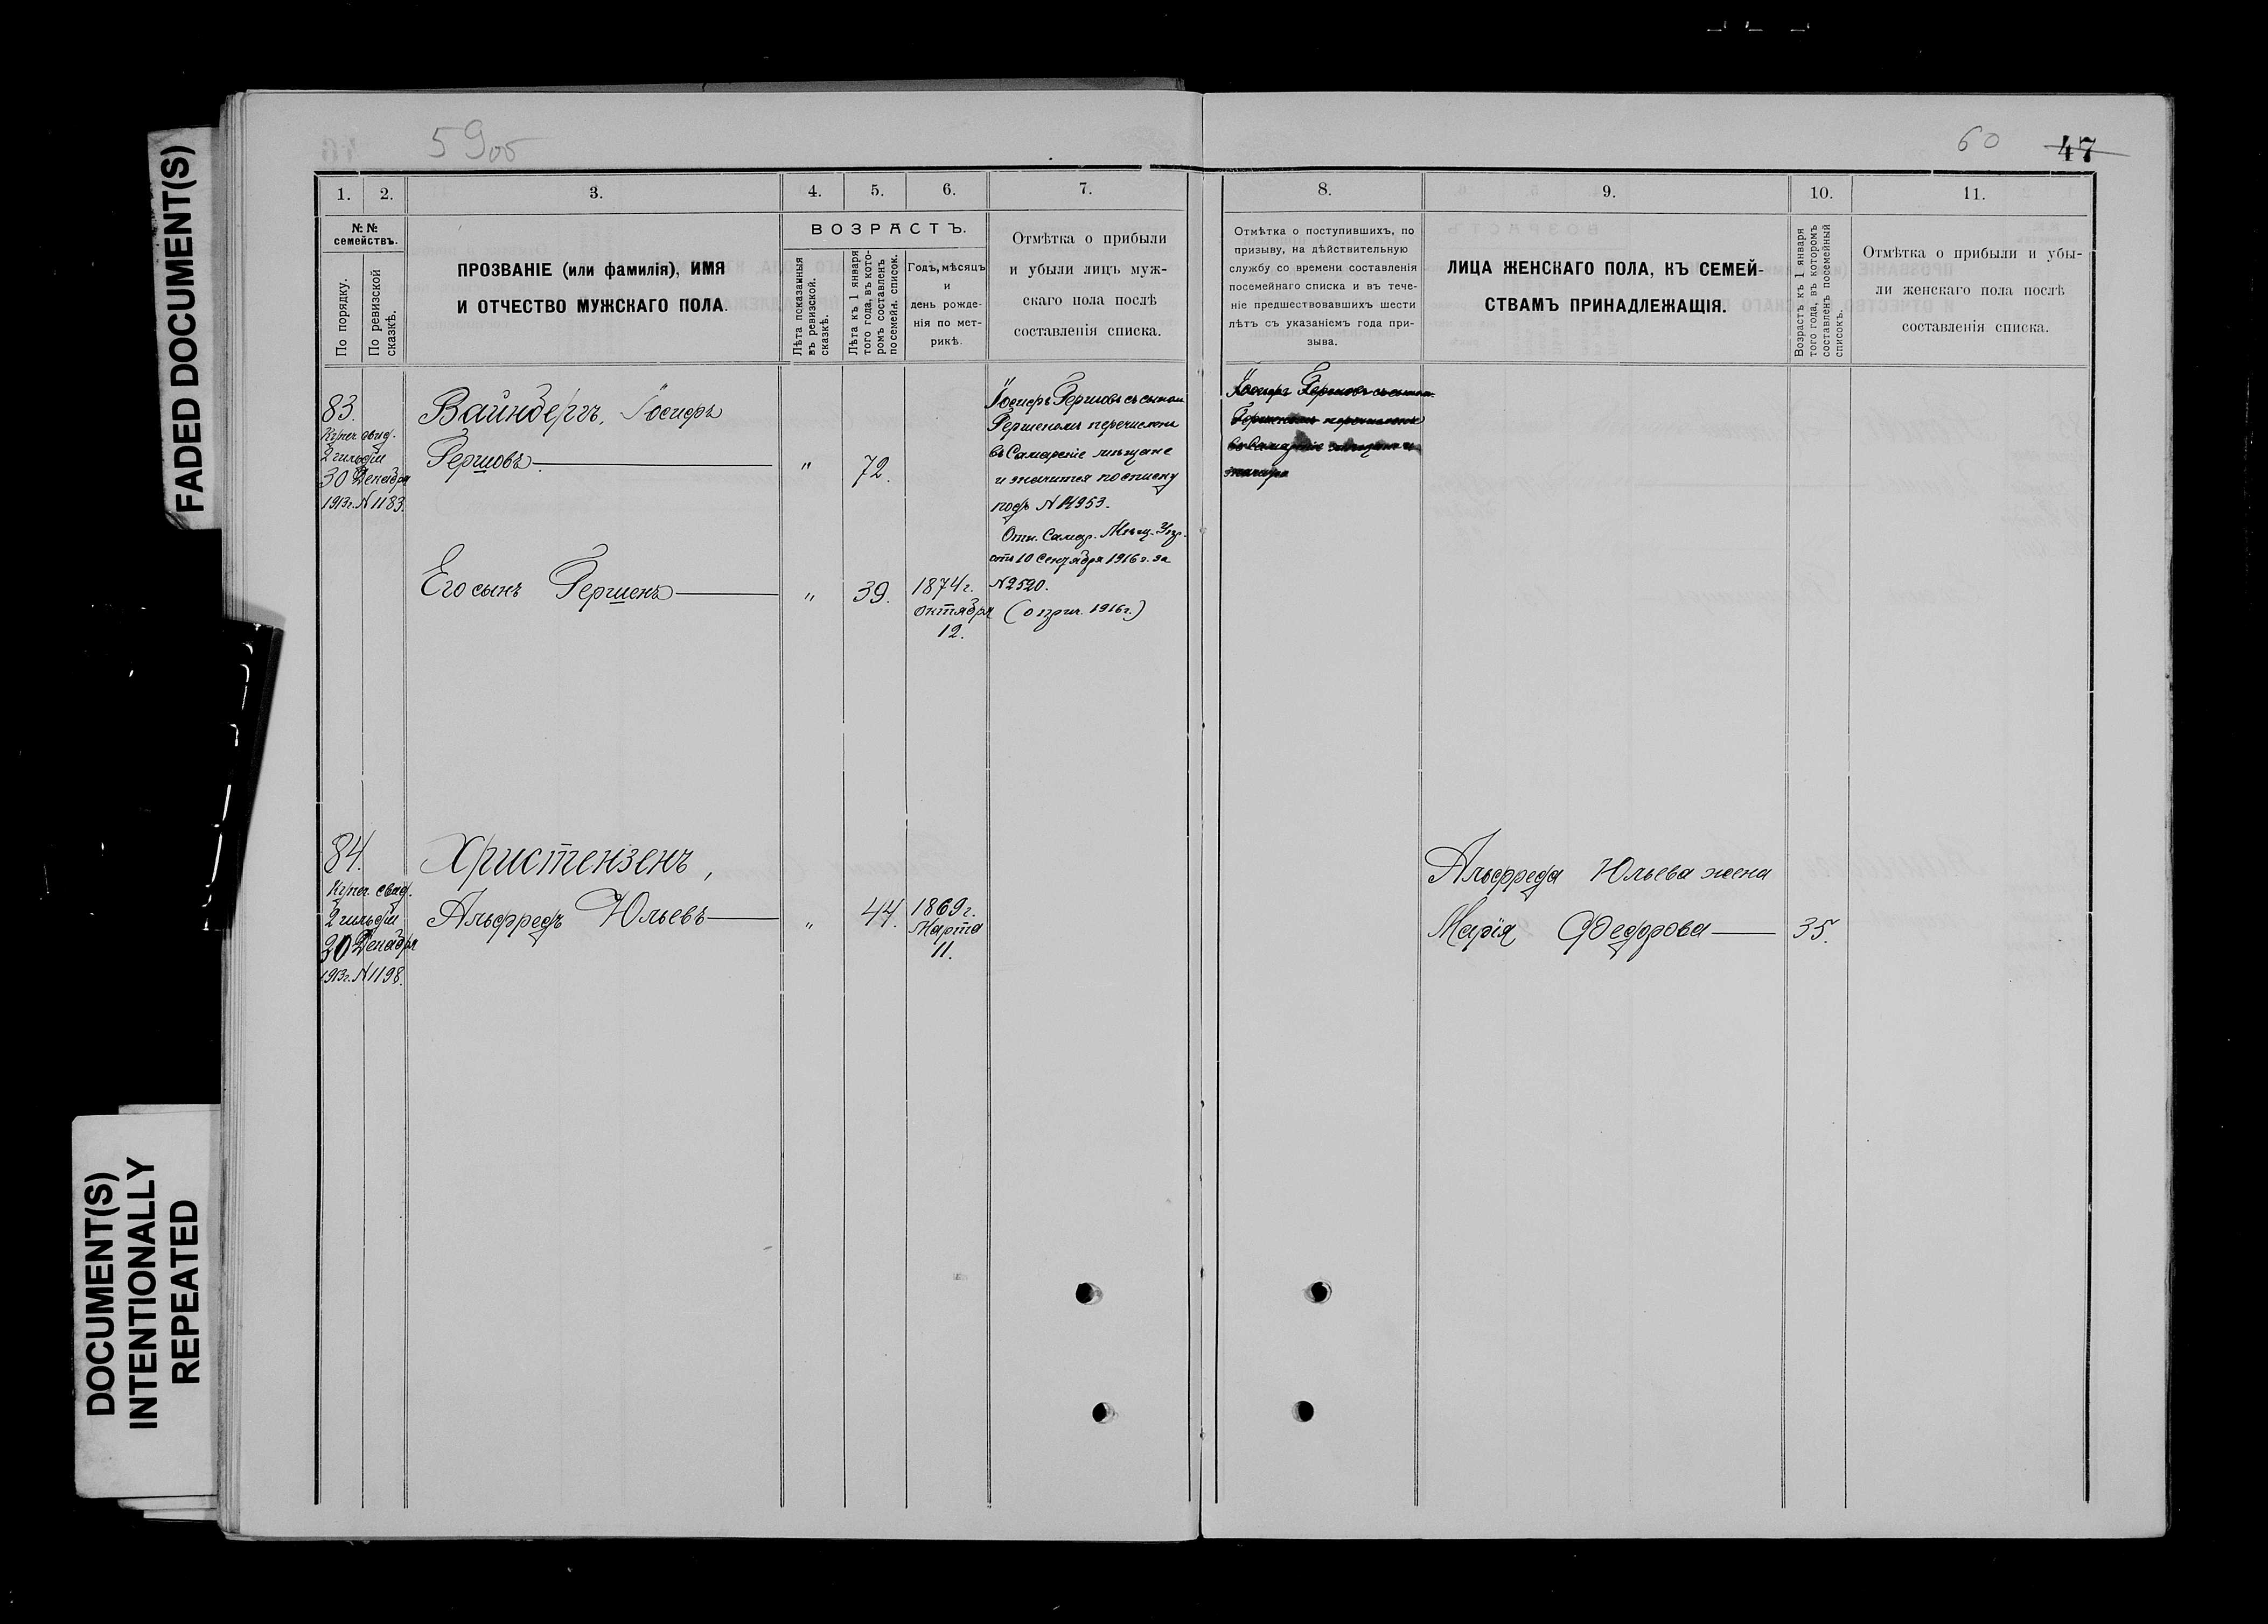 FADED DOCUMENT(S)
DOCUMENT(S)
INTENTIONALLY
REPEATED
59об
60 47
1. 2. 3. 4. 5. 6. 7.
№ №
семействъ.
По порядку.
По ревизской
сказкѣ.
ПРОЗВАНІЕ (или фамилія), ИМЯ
И ОТЧЕСТВО МУЖСКАГО ПОЛА.
ВОЗРАСТЪ.
Лѣта показанныя
въ ревизской.
сказкѣ.
Лѣта къ 1 января
того года, въ кото-
ромъ составленъ
посемейн. список.
Годъ, мѣсяцъ
и
день рожде-
нія по мет-
рикѣ.
Отмѣтка о прибыли
и убыли лицъ муж-
скаго пола послѣ
составленія списка.
83.
Купеч. свид.
2 гильдіи
30 Декабря
1913г. N 1183.
Вайнбергъ, Іосифъ
Гершовъ — " 72.
Его сынъ Гершенъ — " 39. 1874г.
октября
12.
Іосифъ Гершовъ съ сыномъ
Гершеномъ перечислены
въ Самарскіе мѣщане
и значится по списку
подъ N 14953.
Отн. Самар. Мѣщ. Упр.
отъ 10 Сентября 1916 г. за
N 2520.
(о прич. 1916г.)
84.
Купеч. свид.
2 гильдіи
30 Декабря
1913г. N 1198.
Христензенъ,
Альфредъ Юльевъ — " 44. 1869г.
Марта
11.
8. 9. 10. 11.
Отмѣтка о поступившихъ, по
призыву, на дѣйствительную
службу со времени составленія
посемейнаго списка и въ тече-
ніе предшествовавшихъ шести
лѣтъ съ указаніемъ года при-
зыва.
ЛИЦА ЖЕНСКАГО ПОЛА, КЪ СЕМЕЙ-
СТВАМЪ ПРИНАДЛЕЖАЩІЯ.
Возрастъ къ 1 января
того года, въ которомъ
составленъ посемейный
списокъ.
Отмѣтка о прибыли и убы-
ли женскаго пола послѣ
составленія списка.
Іосифъ Гершовъ съ сыном
Гершеномъ перечислены
въ Самарскіе
Альфреда Юльева жена
Марія Федорова — 35.